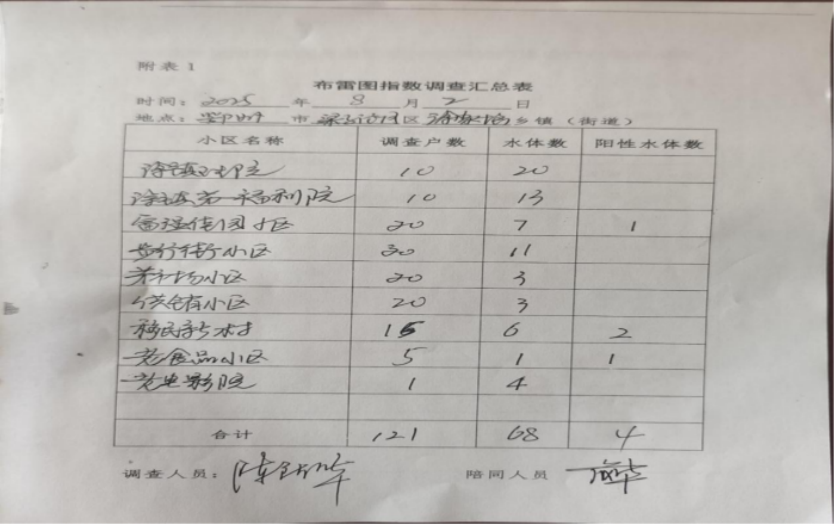 附表1
布雷图指数调查汇总表
时间：2025年8月2日
地点：鄂州市梁子湖区 乡镇（街道）
小区名称 调查户数 水体数 阳性水体数
10 20
福利院 10 13
小区 20 7 1
步行街小区 30 11
菜市场小区 20 3
供销小区 20 3
移民新村 15 6 2
老食品小区 5 1 1
老电影院 1 4
合计 121 68 4
调查人员： 陪同人员